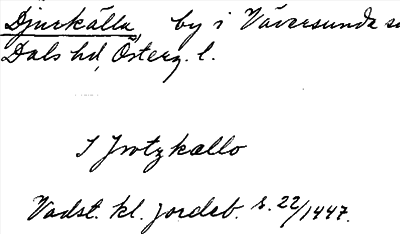 Djurkälla, by i Väversunda s
Dals hd, Österg. l.
I Jrotzkallo
Vadst. kl. jordeb. s. 22/1447.